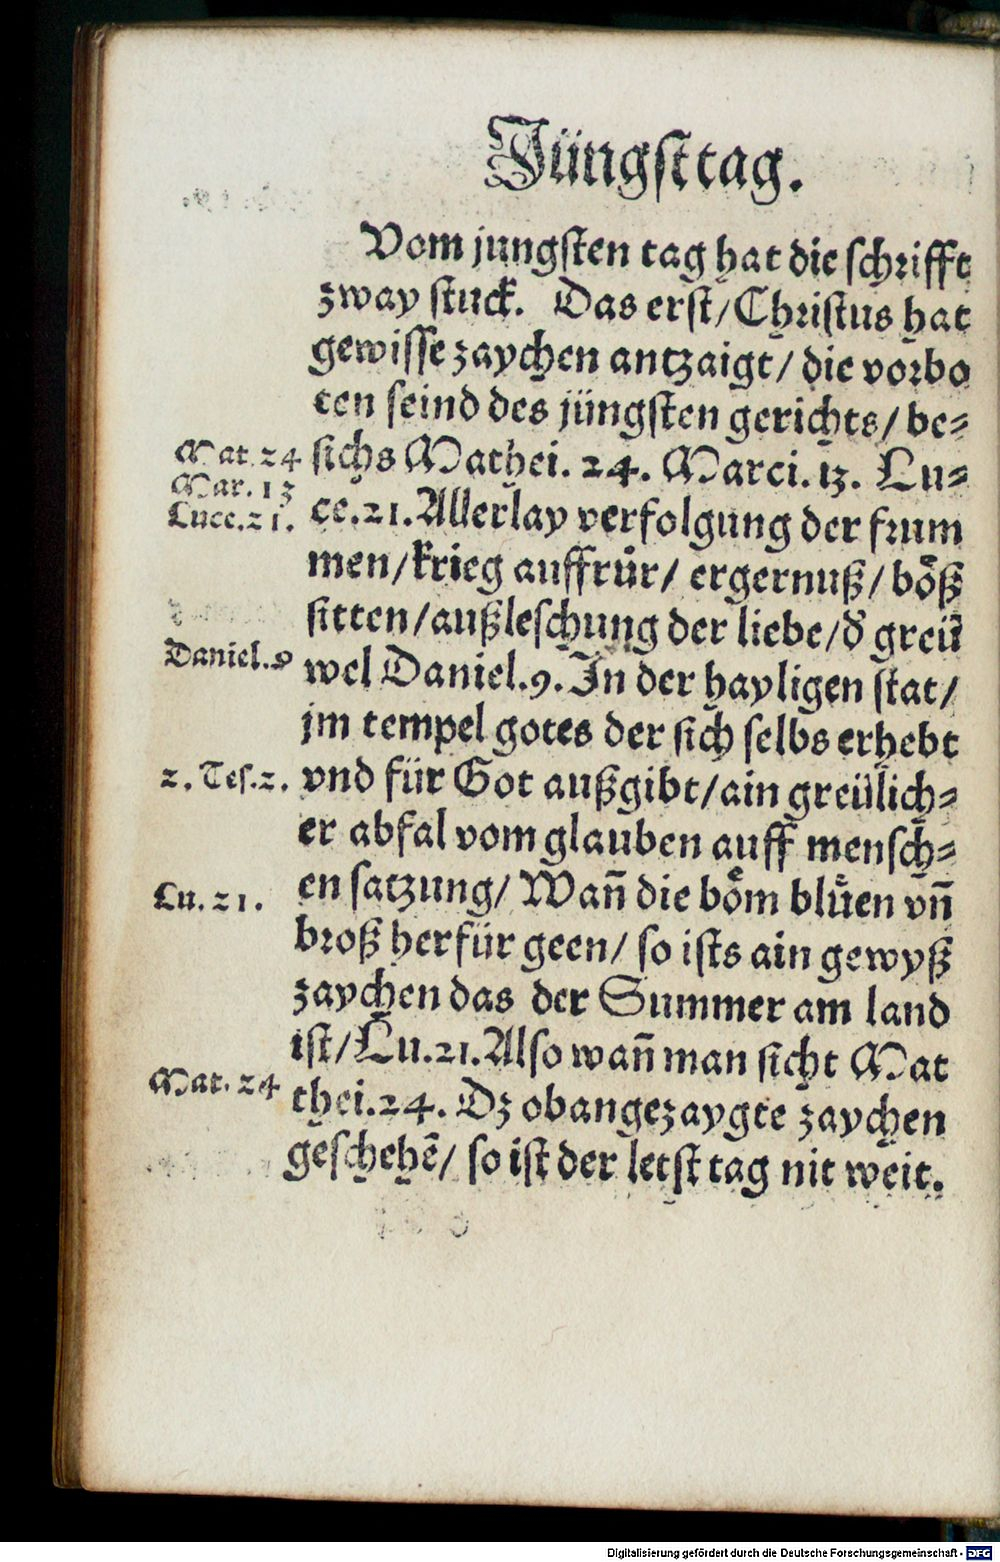 Jüngsttag.
Vom jungsten tag hat die schrifft
zway stuck. Das erst/Christus hat
gewisse zaychen antzaigt/ die vorbo
ten seind des jüngsten gerichts/ be⸗
Mat. 24
sichs Mathei. 24. Marci. 13. Lu⸗
Mar. 13
Luce. 21.
ce. 21. Allerlay verfolgung der frum
men/krieg auffrůr/ ergernuß/ bôͤß
sitten/außleschung der liebe/d̕ greü
Daniel. 9
wel Daniel. 9. In der hayligen stat/
jm tempel gotes der sich selbs erhebt
2. Tes. 2.
vnd für Got außgibt/ain greülich⸗
er abfal vom glauben auff mensch⸗
Lu. 21.
en satzung/ Wañ die boͤm bluͤen vñ
broß herfür geen/ so ists ain gewyß
zaychen das der Summer am land
ist/Lu. 21. Also wañ man sicht Mat
Mat. 24
thei. 24. Dz obangezaygte zaychen
geschehē/ so ist der letst tag nit weit.
Digitalisierung gefördert durch die Deutsche Forschungsgemeinschaft - DFG